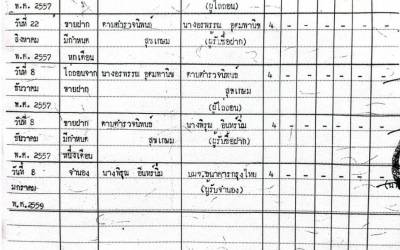 พ.ศ. 2557 (ผู้ไถ่ถอน)
วันที่ 22 ขายฝาก ดาบตำรวจนิพนธ์ นางอรพรรณ อุดมพานิช 4 - - - -
สิงหาคม มีกำหนด สุขเกษม (ผู้รับซื้อฝาก)
พ.ศ. 2557 หกเดือน
วันที่ 8 ไถ่ถอนจาก นางอรพรรณ อุดมพานิช ดาบตำรวจนิพนธ์ 4 - - - -
ธันวาคม ขายฝาก สุขเกษม
พ.ศ. 2557 (ผู้ไถ่ถอน)
วันที่ 8 ขายฝาก ดาบตำรวจนิพนธ์ นางพิรุณ อินทร์นิ่ม 4 - - - -
ธันวาคม มีกำหนด สุขเกษม (ผู้รับซื้อฝาก)
พ.ศ. 2557 หนึ่งเดือน
วันที่ 8 จำนอง นางพิรุณ อินทร์นิ่ม บมจ.ธนาคารกรุงไทย 4 - - - -
มกราคม (ผู้รับจำนอง)
พ.ศ. 2559